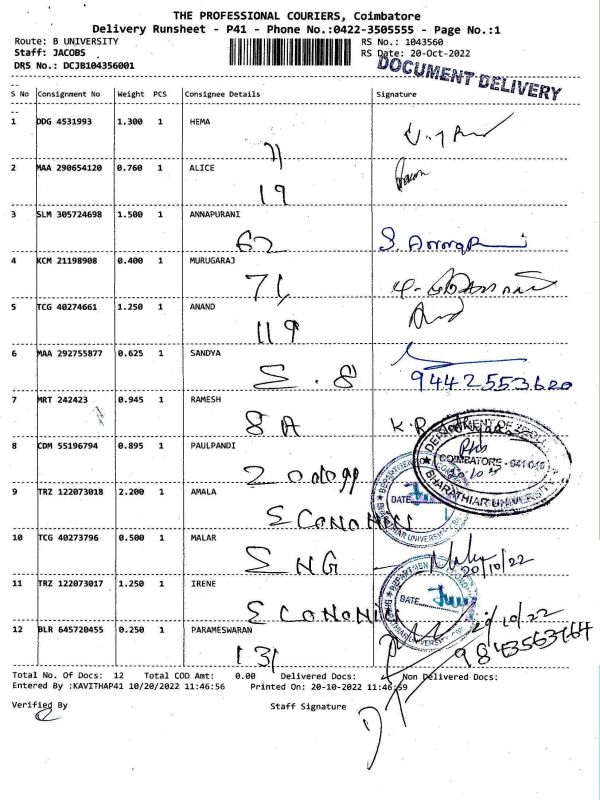 THE PROFESSIONAL COURIERS, Coimbatore
Delivery Runsheet - P41 - Phone No.:0422-3505555 - Page No.:1
Route: B UNIVERSITY
RS No.: 1043560
Staff: JACOBS
RS Date: 20-Oct-2022
DRS No.: DCJB104356001
DOCUMENT DELIVERY
S No Consignment No Weight PCS Consignee Details Signature
1 DDG 4531993 1.300 1 HEMA
71
2 MAA 290654120 0.760 1 ALICE
19
3 SLM 305724698 1.500 1 ANNAPURANI
62
4 KCM 21198908 0.400 1 MURUGARAJ
71,
5 TCG 40274661 1.250 1 ANAND
119
6 MAA 292755877 0.625 1 SANDYA
S . 8
9442553620
7 MRT 242423 0.945 1 RAMESH
8 A
8 CDM 55196794 0.895 1 PAULPANDI
COIMBATORE - 641 046
BHARATHIAR UNIVERSITY
9 TRZ 122073018 2.200 1 AMALA
DATE
10 TCG 40273796 0.500 1 MALAR
ENG
20/10/22
11 TRZ 122073017 1.250 1 IRENE
DATE
20/10/22
12 BLR 645720455 0.250 1 PARAMESWARAN
131
Total No. Of Docs: 12 Total COD Amt: 0.00 Delivered Docs: Non Delivered Docs:
Entered By :KAVITHAP41 10/20/2022 11:46:56 Printed On: 20-10-2022 11:46:59
Verified By Staff Signature